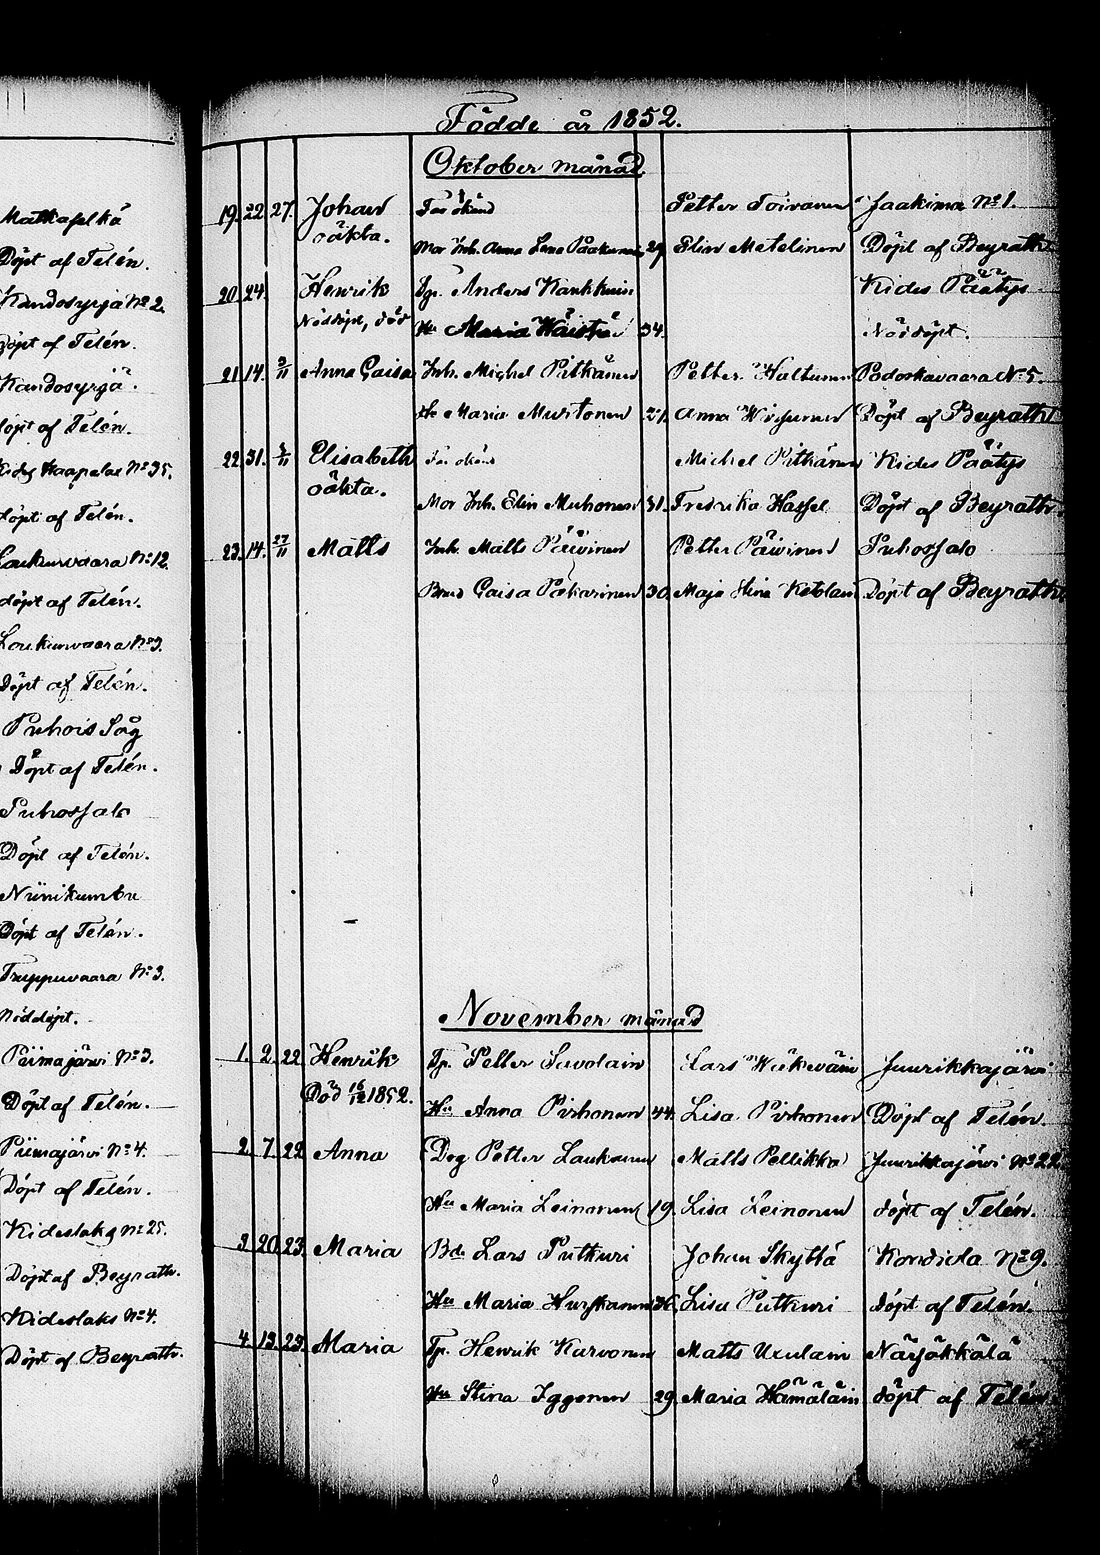 Matkaselkä
Döpt af Telén.
Kandosyrjä No 2.
döpt af Telén.
Kandosyrjä.
döpt af Telén.
Kides Haapalax No 35.
döpt af Telén.
Loukunvaara No 12.
döpt af Telén.
Loukunvaara No 3.
Döpt af Telén.
Puhois Såg
Döpt af Telén.
Puhossalo
Döpt af Telén.
Niinikumbu
Döpt af Telén.
Truppuvaara No 3.
Nöddöpt.
Piimajärvi No 3.
Döpt af Telén.
Piimajärvi No 4.
Döpt af Telén.
Kideslaks No 25.
Döpt af Beyrath.
Kideslaks No 4.
Döpt af Beyrath.
Födde år 1852.
Oktober månad
19. 22 27. Johan Far okänd Petter Toivanen Jaakima No 1.
oäkta. Mor Inh. Anna Lena Paakunen 29. Elin Metelinen Döpt af Beyrath
20. 24. Henrik Tp. Anders Kankkuin Kides Päätys
Nöddöpt, död Hu Maria Wäistä 34. Nöddöpt.
21. 14. 3/11 Anna Caisa Inh. Michel Pitkänen Petter Haltunen Podoskavaara No 5.
Hu Maria Mustonen 21. Anna Döpt af Beyrath
22. 31. 5/11 Elisabeth Far okänd Michel Pitkänen Kides Päätys
oäkta. Mor Inh. Elin Muhonen 31. Fredrika Hassel Döpt af Beyrath.
23. 14. 27/11 Matts Inh. Matts Päivinen Petter Päivinen Puhossalo
Caisa Pakarinen 30. Maja Stina Ketolain Döpt af Beyrath
November månad
1. 2. 22. Henrik Tp. Petter Savolain Lars Wäkeväin Juurikkajärvi
Död 16/12 1852. Hu Anna Pirhonen 44. Lisa Pirhonen Döpt af Telén.
2. 7. 22 Anna Drg Petter Laukanen Matts Pellikka Juurikkajärvi No 22
Hu Maria Leinonen 19. Lisa Leinonen döpt af Telén.
3. 20. 23. Maria Bd. Lars Putkuri Johan Skyttä Kondida No 9.
Hu Maria Hurskanen 36. Lisa Putkuri döpt af Telén.
4. 13. 23. Maria Tp. Henrik Karvonen Matts Uxulain Närsäkkälä
Hu Stina Iggonen 29. Maria Hämäläin döpt af Telén.